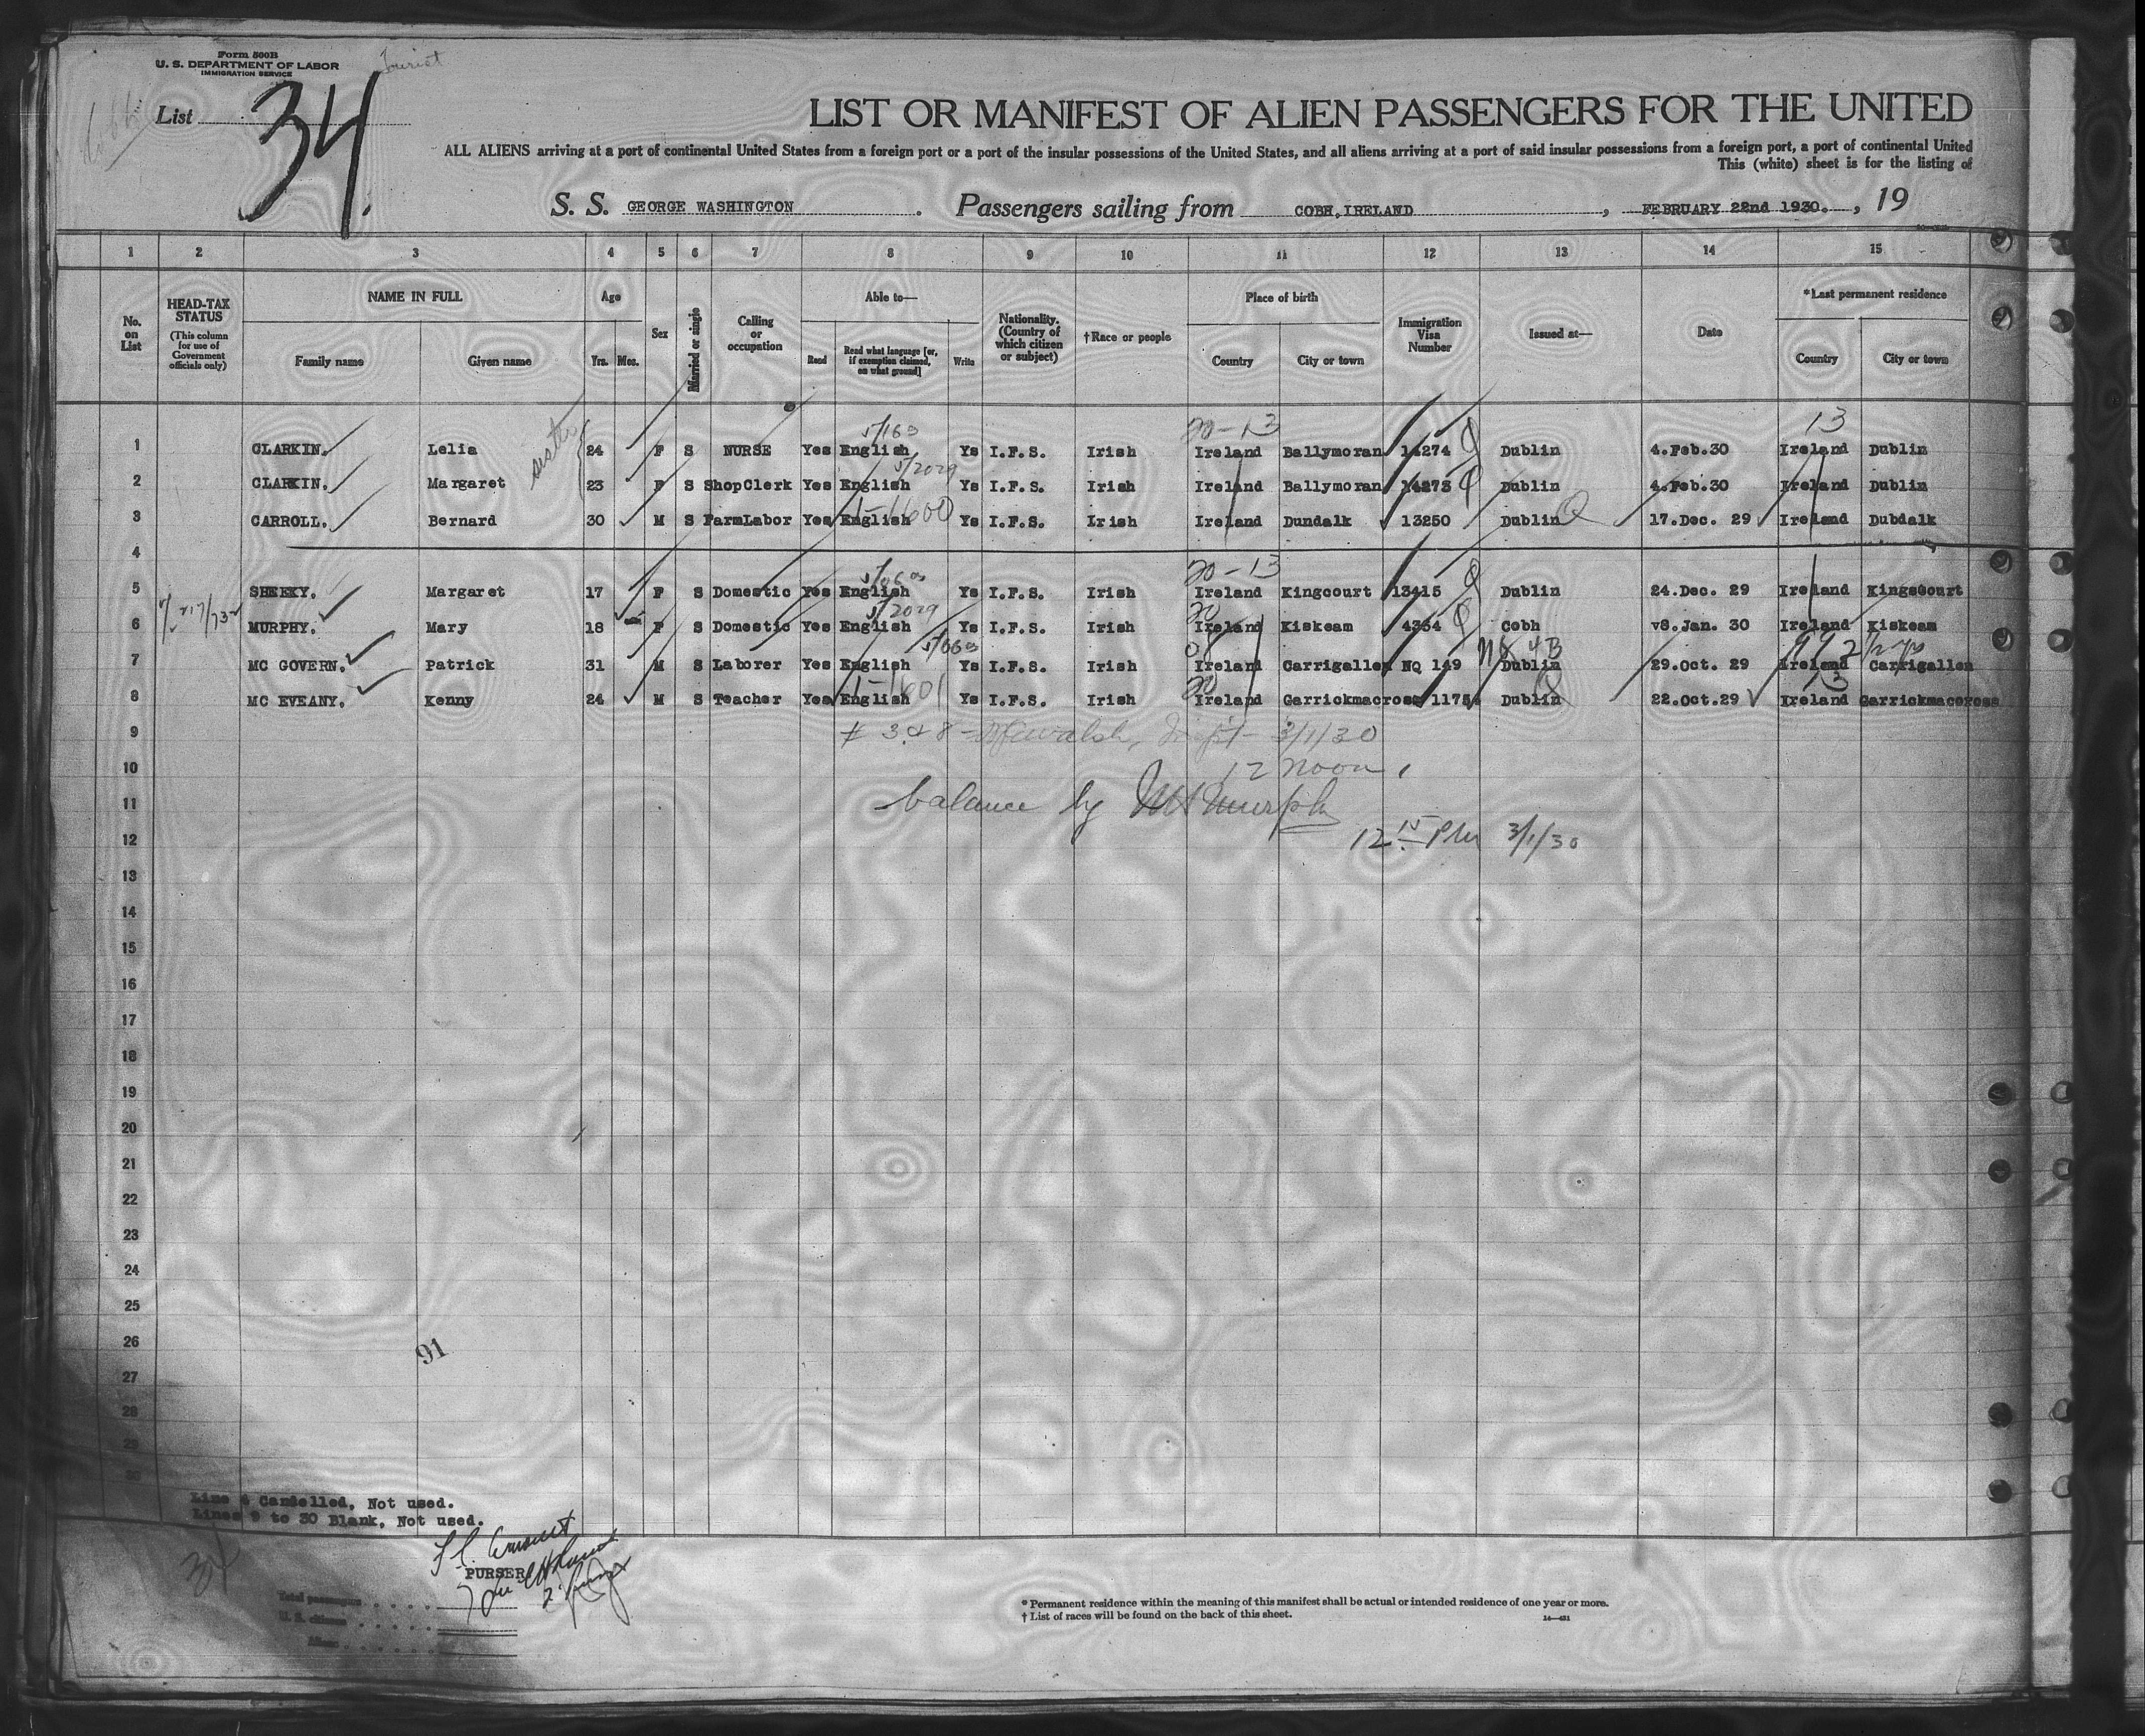 Form 500B
U. S. DEPARTMENT OF LABOR
IMMIGRATION SERVICE
Tourist
List 34.
LIST OR MANIFEST OF ALIEN PASSENGERS FOR THE UNITED
ALL ALIENS arriving at a port of continental United States from a foreign port or a port of the insular possessions of the United States, and all aliens arriving at a port of said insular possessions from a foreign port, a port of continental United
This (white) sheet is for the listing of
S. S. GEORGE WASHINGTON. Passengers sailing from COBH, IRELAND, FEBRUARY 22nd 1930., 19
1 2 3 4 5 6 7 8 9 10 11 12 13 14 15
No. on List
HEAD-TAX STATUS (This column for use of Government officials only)
NAME IN FULL
Family name Given name
Age
Yrs. Mos.
Sex
Married or single
Calling or occupation
Able to—
Read Read what language [or, if exemption claimed, on what ground] Write
Nationality. (Country of which citizen or subject)
†Race or people
Place of birth
Country City or town
Immigration Visa Number
Issued at—
Date
*Last permanent residence
Country City or town
20-13 13
1 CLARKIN. Lelia 24 F S NURSE Yes English Ys I.F.S. Irish Ireland Ballymoran 14274 Dublin 4.Feb.30 Ireland Dublin
sister
5/2029
2 CLARKIN. Margaret 23 F S ShopClerk Yes English Ys I.F.S. Irish Ireland Ballymoran 14273 Dublin 4.Feb.30 Ireland Dublin
3 CARROLL. Bernard 30 M S FarmLabor Yes English Ys I.F.S. Irish Ireland Dundalk 13250 Dublin 17.Dec. 29 Ireland Dubdalk
4
20-13
5 SHEEKY. Margaret 17 F S Domestic Yes English Ys I.F.S. Irish Ireland Kingcourt 13415 Dublin 24.Dec. 29 Ireland KingsCourt
5/2029 20
6 MURPHY. Mary 18 F S Domestic Yes English Ys I.F.S. Irish Ireland Kiskeam 4364 Cobh v8.Jan. 30 Ireland Kiskeam
7 MC GOVERN. Patrick 31 M S Laborer Yes English Ys I.F.S. Irish Ireland Carrigallen NQ 149 Dublin 29.Oct. 29 Ireland Carrigallen
20 13
8 MC EVEANY. Kenny 24 M S Teacher Yes English Ys I.F.S. Irish Ireland Carrickmacross 1175 Dublin 22.Oct.29 Ireland Carrickmacoross
9 # 3 & 8 - Walsh, Insp't - 3/1/30
10 12 noon.
11 balance by Murphy
12 12 15 PM 3/1/30
13
14
15
16
17
18
19
20
21
22
23
24
25
26
91
27
28
29
30
Line 4 Cancelled, Not used.
Lines 9 to 30 Blank, Not used.
34
PURSER
Total passengers
U. S. citizens
Aliens
* Permanent residence within the meaning of this manifest shall be actual or intended residence of one year or more.
† List of races will be found on the back of this sheet.
14—431